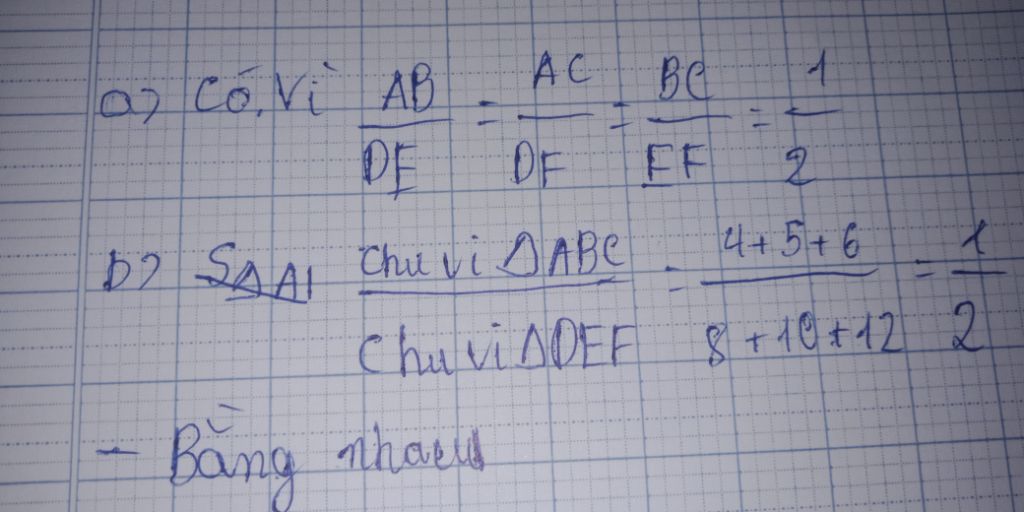 a) Có. Vì AB/DE = AC/DF = BC/EF = 1/2
b) Chu vi ΔABC/Chu vi ΔDEF = 4+5+6/8+10+12 = 1/2
- Bằng nhau